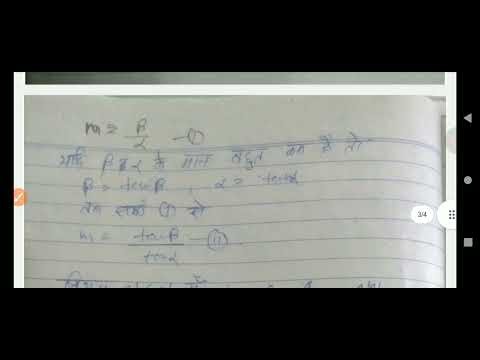 m = β/α —(1)
यदि β व α के मान बहुत कम है तो
β = tanβ , α = tanα
तब समी० (1) से
m = tanβ/tanα —(11)
3/4